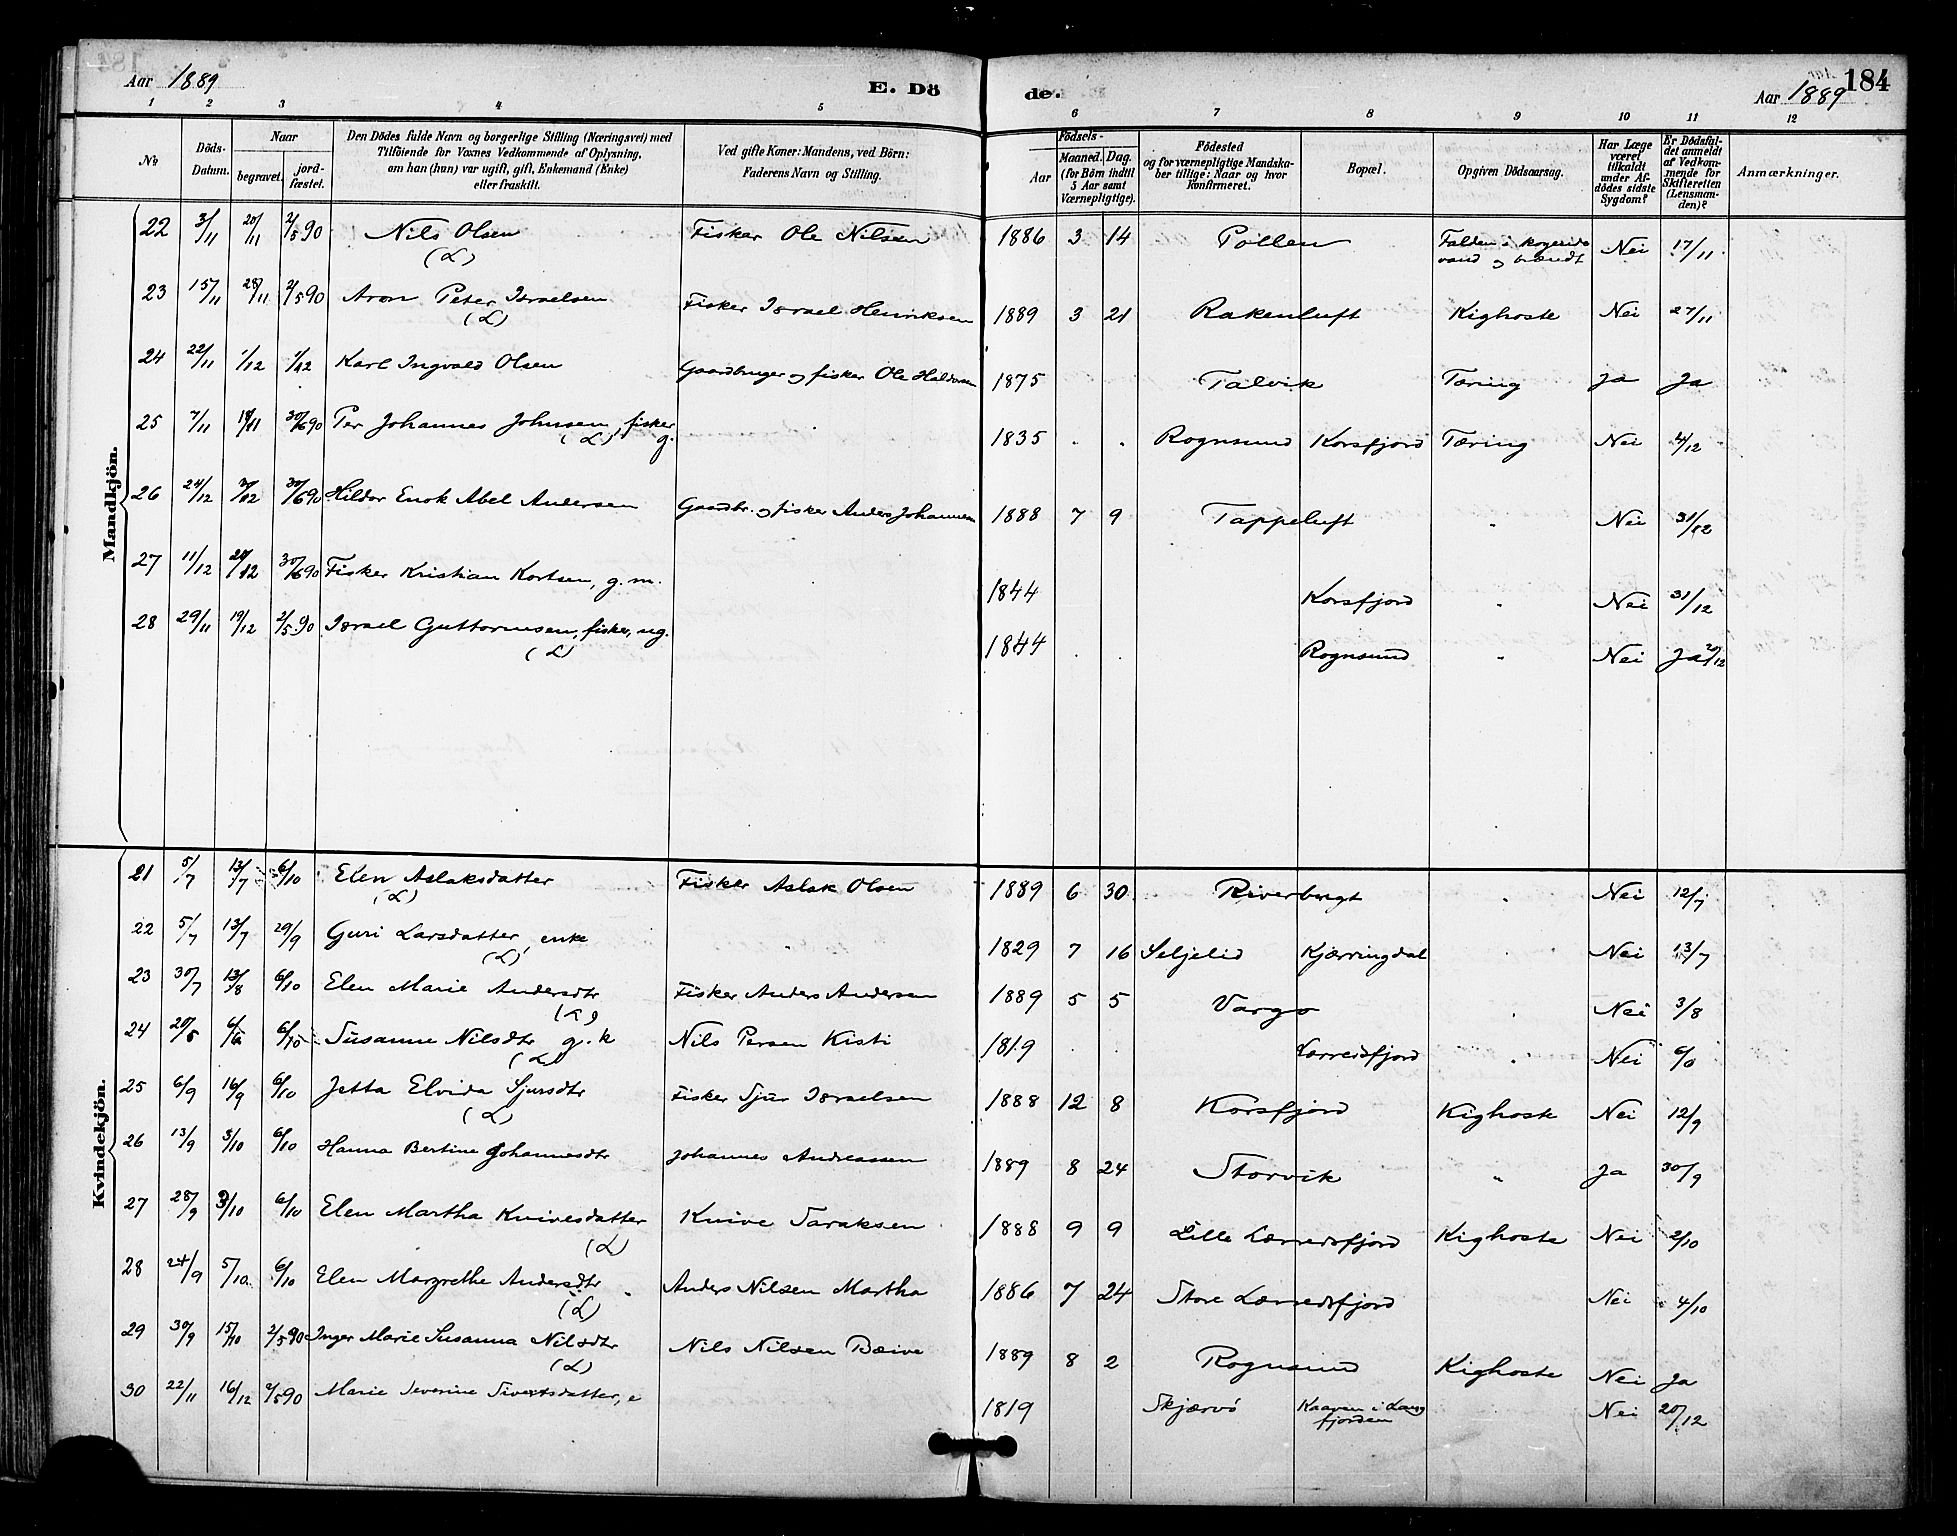 Aar 1889
E. Dö
de.
184
Aar 1889
1 2 3 4 5 6 7 8 9 10 11 12
No
Döds-Datum.
Naar
begravet.
jord-fæstet.
Den Dödes fulde Navn og borgerlige Stilling (Næringsvei) med
Tilföiende for Voxnes Vedkommende af Oplysning,
om han (hun) var ugift, gift, Enkemand (Enke)
eller fraskilt.
Ved gifte Koner: Mandens, ved Börn:
Faderens Navn og Stilling.
Födsels-
Aar
Maaned. Dag.
(for Börn indtil
5 Aar samt
Værnepligtige).
Födested
og for værnepligtige Mandska-
ber tillige: Naar og hvor
Konfirmeret.
Bopæl.
Opgiven Dödsaarsag.
Har Læge
været
tilkaldt
under Af-
dödes sidste
Sygdom?
Er Dödsfal-
det anmeldt
af Vedkom-
mende for
Skifteretten
(Lensman-
den)?
Anmærkninger.
Mandkjön.
22 3/11 20/11 2/5 90 Nils Olsen (L) Fisker Ole Nilsen 1886 3 14 Pollen Falden i kogende vand og brændt Nei 17/11
23 15/11 28/11 2/5 90 Aron Peter Israelsen (L) Fisker Israel Henriksen 1889 3 21 Rakenluft Kighoste Nei 27/11
24 22/11 1/12 1/12 Karl Ingvald Olsen Gaardbruger og fisker Ole Haldorsen 1875 Talvik Tæring Ja Ja
25 7/11 30/6 90 Per Johannes Johnsen, fisker (L) g. 1835 Rognsund Korsfjord Tæring Nei 4/12
26 24/12 30/6 90 Hildor Enok Abel Andersen Gaardbr. og fisker Anders Johannesen 1888 7 9 Tappeluft " Nei 31/12
27 11/12 30/6 90 Fisker Kristian Kortsen, g. m. 1844 Korsfjord " Nei 31/12
28 29/11 19/12 2/5 90 Israel Guttormsen, fisker, ug. (L) 1844 Rognsund " Nei Ja 20/12
Kvindekjön.
21 5/7 13/7 6/10 Elen Aslaksdatter (L) Fisker Aslak Olsen 1889 6 30 Riverbugt " Nei 12/7
22 5/7 13/7 29/9 Guri Larsdatter, enke (L) " 1829 7 16 Seljelid Kjærringdal Nei 13/7
23 30/7 13/8 6/10 Elen Marie Andersdtr Fisker Anders Andersen 1889 5 5 Vargo " Nei 3/8
24 6/6 6/10 Susanne Nilsdtr g. k (L) Nils Persen Kisti 1819 Lærredsfjord " Nei
25 6/9 16/9 6/10 Jetta Elvida Sjursdtr (L) Fisker Sjur Israelsen 1888 12 8 Korsfjord Kighoste Nei 12/9
26 13/9 3/10 6/10 Hanna Bertine Johannesdtr Johannes Andreassen 1889 8 24 Storvik " Ja 30/9
27 28/9 3/10 6/10 Elen Martha Knivesdatter (L) Knive Saraksen 1888 9 9 Lille Lærredsfjord Kighoste Nei 2/10
28 24/9 5/10 6/10 Elen Margrethe Andersdtr (L) Anders Nilsen Martha 1886 7 24 Store Lærredsfjord Nei 4/10
29 30/9 15/10 2/5 90 Inger Marie Susanna Nilsdtr (L) Nils Nilsen Bæive 1889 8 2 Rognsund Kighoste Nei Ja
30 22/11 16/12 2/5 90 Marie Severine Sivertsdatter, e 1819 Skjærvö Kaaven i Lang fjorden Nei 20/12